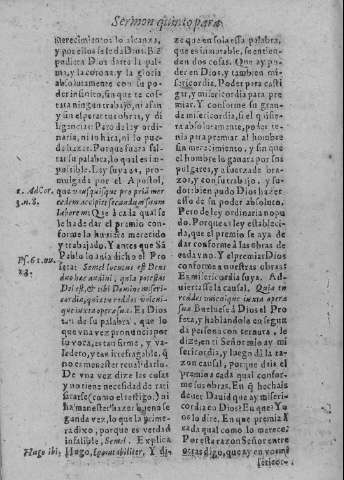 Sermon quinto para
merecimientos lo alcança,
y por ellos se le dà Dios. Biẽ
pudiera Dios darte la pal-
ma, y la corona, y la gloria
absolutamente con su po-
der infinito, sin que te cos-
tara ningun trabajo, ni afan
y sin esperar tus obras, y di
ligencias: Pero de ley ordi-
naria, ni lo harà, ni lo pue-
de hazer. Porque fuera fal-
tar su palabra, lo qual es im-
pusible. Ley suya es, pro-
mulgada por el Apostol,
1. Ad Cor.
3. n. 8.
que vnusquisque propriã mer
cedem accipiet secundum suum
laborem: Que à cada qual se
le ha de dar el premio con-
forme lo huuiere merecido
y trabajado. Y antes que Sã
Psf. 61. nu.
Pablo lo auia dicho el Pro
feta: Semel locutus est Deus
duo hæc audiui, quia potestas
Dei est, & tibi Domine miseri-
cordia, quia tu reddes vnicui-
que iuxta opera sua. Es Dios
tan de su palabra, que lo
que vna vez pronuncio por
su voca, es tan firme, y va-
ledero, y tan irrefragable, q̃
no ca menester reualidarlo.
De vna vez dize las cosas
y no tiene necesidad de rati
ficarse (como el testigo) ni
ha menester hazer bueno se
gunda vez, lo que la prime-
ra dixo, porque es verdad
infalible, Semel. Explica
Hugo ibi,
Hugo, Immutabiliter, Y di-
ze que en sola essa palabra,
que es inmutable, se entien-
den dos cosas. Que ay po-
der en Dios, y tambien mi-
sericordia. Poder para casti
gar, y misericordia para pre
miar. Y conforme su gran-
de misericordia, si el quisie-
ra absolutamente, poder te-
nia para premiar al hombre
sin merecimiento, y sin que
el hombre lo ganara por sus
pulgares, y a fuerza de bra-
zos, y con su trabajo, y su-
dor: bien pudo Dios hazer
esso de su poder absoluto.
Pero de ley ordinaria no pu
do. Porque a ley establecida,
que el premio se aya de
dar conforme à las obras de
cada vno. Y el premiar Dios
conforme a nuestras obras
Es misericordia suya. Ad-
uiertasse la causal. Quia tu
reddes vnicuique iuxta opera
sua Bueluese à Dios el Pro
feta, y hablandole en segun
da persona con ternura, le
dize, en ti Señor mio ay mi
sericordia, y luego dà la ra-
zon causal, porque dais el
premio a cada qual confor-
me sus obras. En q̃ hechais
de ver Dauid que ay miseri-
cordia en Dios? En que? Yo
os lo dire. En que premia à
cada qual como lo merece.
Por esta razon Señor entre
otras digo, que ay en vos mi
sericor-